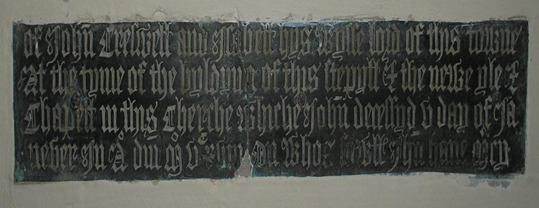 of John Creswell and Isabell hys wyfe lord of this towne
At the tyme of the byldyng of this stepyll & the newe yle &
Chapell in thys Cherche whyche John decessyd v day of Ja
never In A dni on whos soull Jhu have mcy